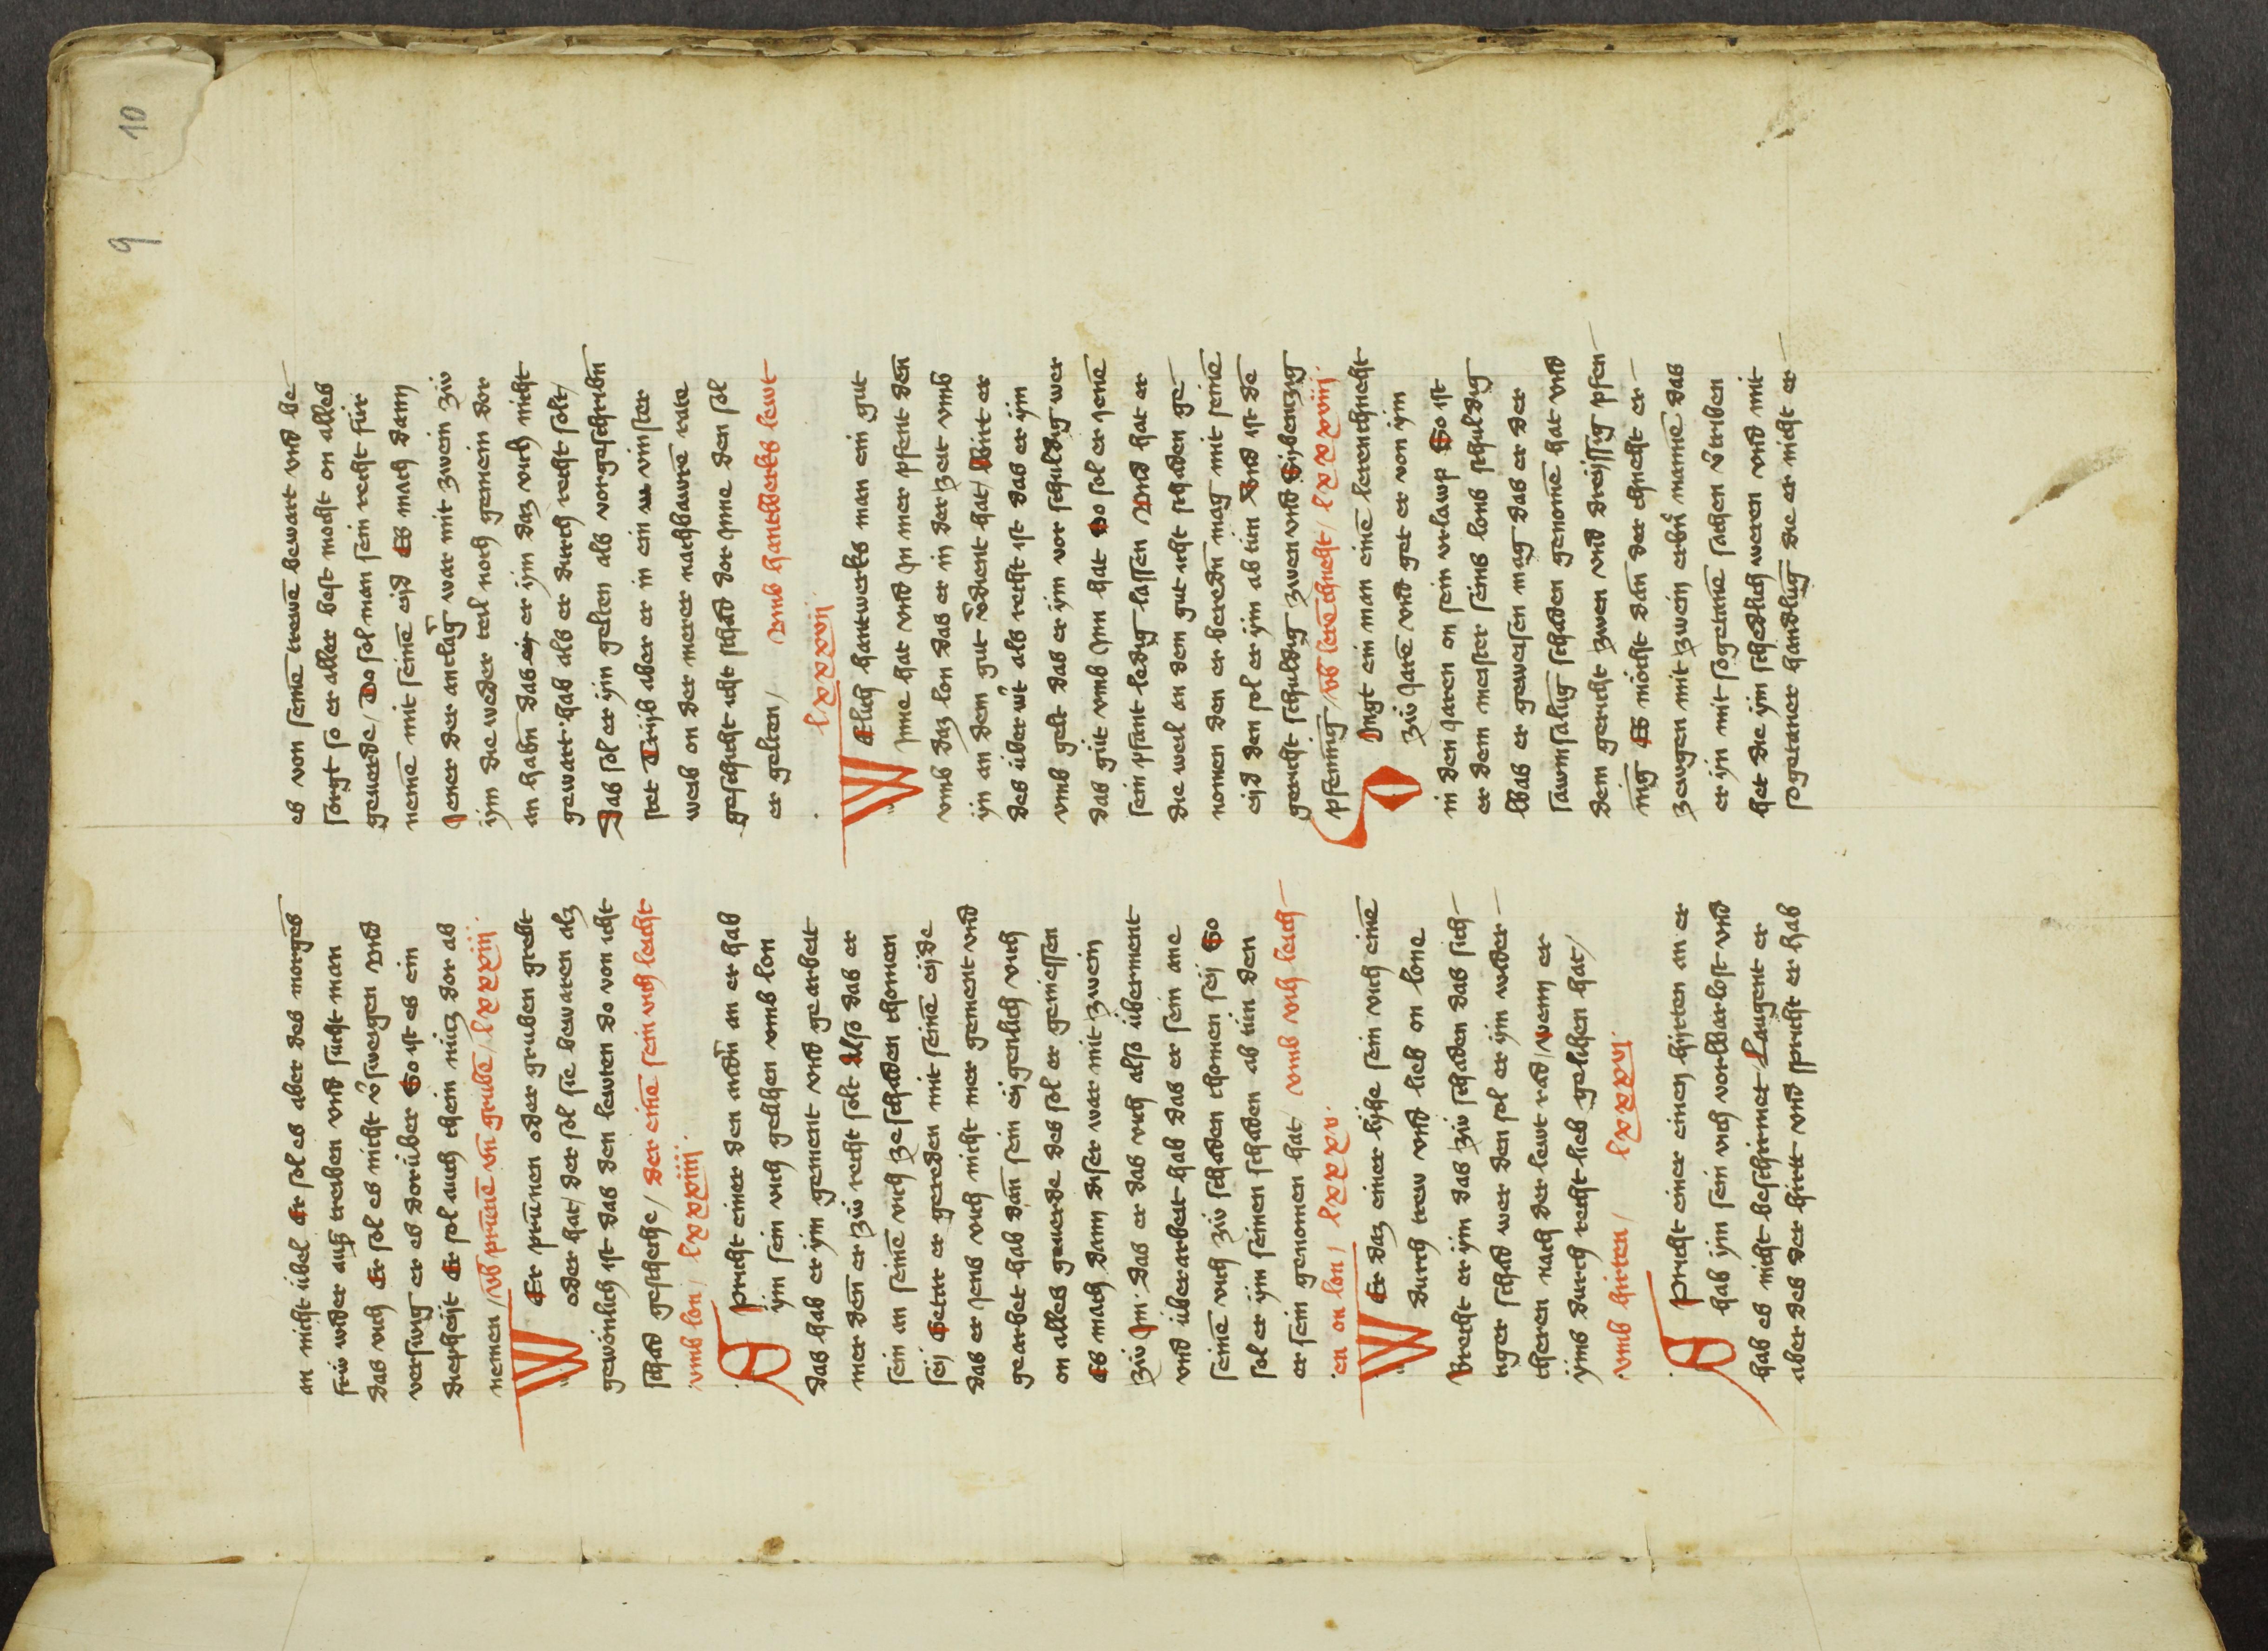 9 10
an nicht übel Er sol es aber des morgēs
frü wider auß treiben vnd sücht man
das vich Er sol es nicht v̉sweygen vnd
versweig er es dorüber So ist es ein
diepheyt Er sol auch chein nücz dor ab
nemen / vb prūnē vn̄ grubē / lxxxiij.
WEr prünen oder gruben grebt
oder hat / der sol sie bewaren alz
gewönlich ist das den lewten do von icht
schad geschehe / der einē sein vich leicht
vmb lon / lxxxiiij.
Spricht einer den andn̄ an er hab
ym sein vich gelihen vmb lon
das hab er ym gement vnd gearbeit
mer den̄ er zü recht solt Also das er
sein an seinē vich ze schaden chomen
sey Getar er gereden mit seinē eyde
das er jens vich nicht mer gement vnd
gearbet hab dan̄ sein eygenlich vich
on alles geuerde des sol er geniessen
Es mach dann diser war mit zwein
zü Im. das er das vich also überment
vnd überarbeit hab das er sein ane
seinē vich zü schaden chomen sey So
sol er ym seinen schaden ab tün den
er sein genomen hat / vmb vich leich-
en on lon / lxxxv.
WEr daz einer lyhe sein vich einē
durch trew vnd lieb on lone
Breiht er ym das zü schaden das sich-
tiger schad wer den sol er ym wider-
cheren nach der lewt rad / wenn er
yms durch recht lieb gelihen hat /
vmb hirten / lxxxvi.
Spricht einer einen hyrten an er
hab ym sein vich vorwarlost vnd
hab es nicht beschirmet Laugent er
aber des der hirtt vnd spricht er hab
es von seinē trewē bewart vnd be-
sorgt so er aller best mocht on alles
geuerde / Do sol man sein recht für
nemē mit seinē eyd Es mach dann
Jener der anclag̉ war mit zwein zü
ym die weder teil noch gemein dor
an habn̄ das er ym daz vich nicht
gewart hab als er durch recht solt /
Das sol er ym gelten als vorgeschribn̄
stet Treib aber er in ein vinster
weis on der merer nachbawrē rate
geschicht icht schad dor Inne den sol
er gelten / vmb hantwercks lewt
lxxxvij.
WElich hantwercks man ein gut
Inne hat vnd In mer pfent den̄
vmb daz lon das er in der zeit vmb
yn an dem gut v̉dient hat / Wirt er
des über wt̉ als recht ist das er ym
vmb gelt das er ym vor schuldig wer
das güt vmb Inn hat Do sol er jenē
sein pfant ledig lassen Vnd hat er
die weil an dem gut icht schaden ge-
nomen den er beredn̄ mag mit seinē
eyd den sol er ym ab tün Vnd ist dē
gericht schuldig zwen vnd Sybenzig
pfennig / vb lerē chnecht / lxxxviij.
DIngt ein man einē lerenchnecht
zü jarē vnd get er von ym
in den jaren on sein vrlawp So ist
er dem meister seins lons schuldig
Was er geweisen mag das er der
sawmsaluḡ schaden genomē hat vnd
dem gericht zwen vnd dreyssig pfen-
nig Es möcht dan̄ der chnecht er-
zeugen mit zwein erbn̄ mannē das
er ym mit sogetanē sachen v̉triben
het die ym schedlich weren vnd mit
sogetaner handluḡ die er nicht er-